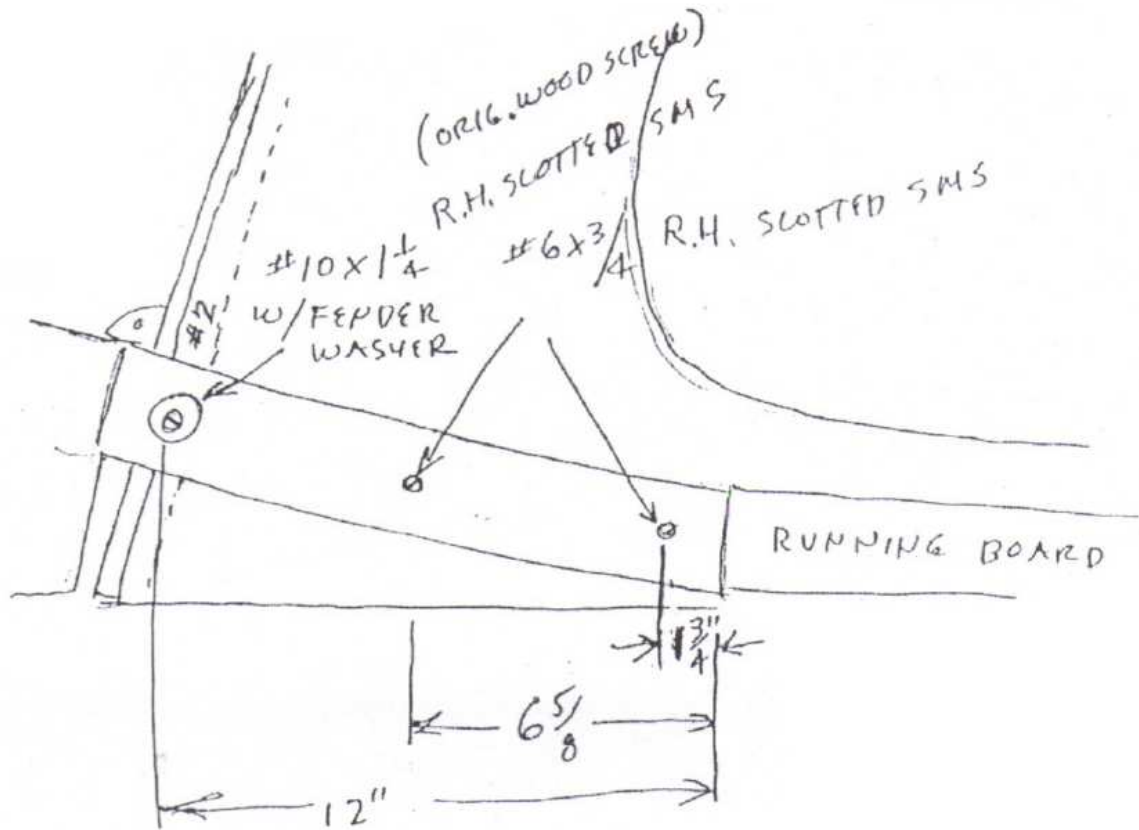 (ORIG. WOOD SCREW)
R.H. SLOTTED SMS
#10 X 1 1/4
W/ FENDER
WASHER
#6 X 3/4
R.H. SLOTTED SMS
#2
RUNNING BOARD
1 3/4"
6 5/8
12"